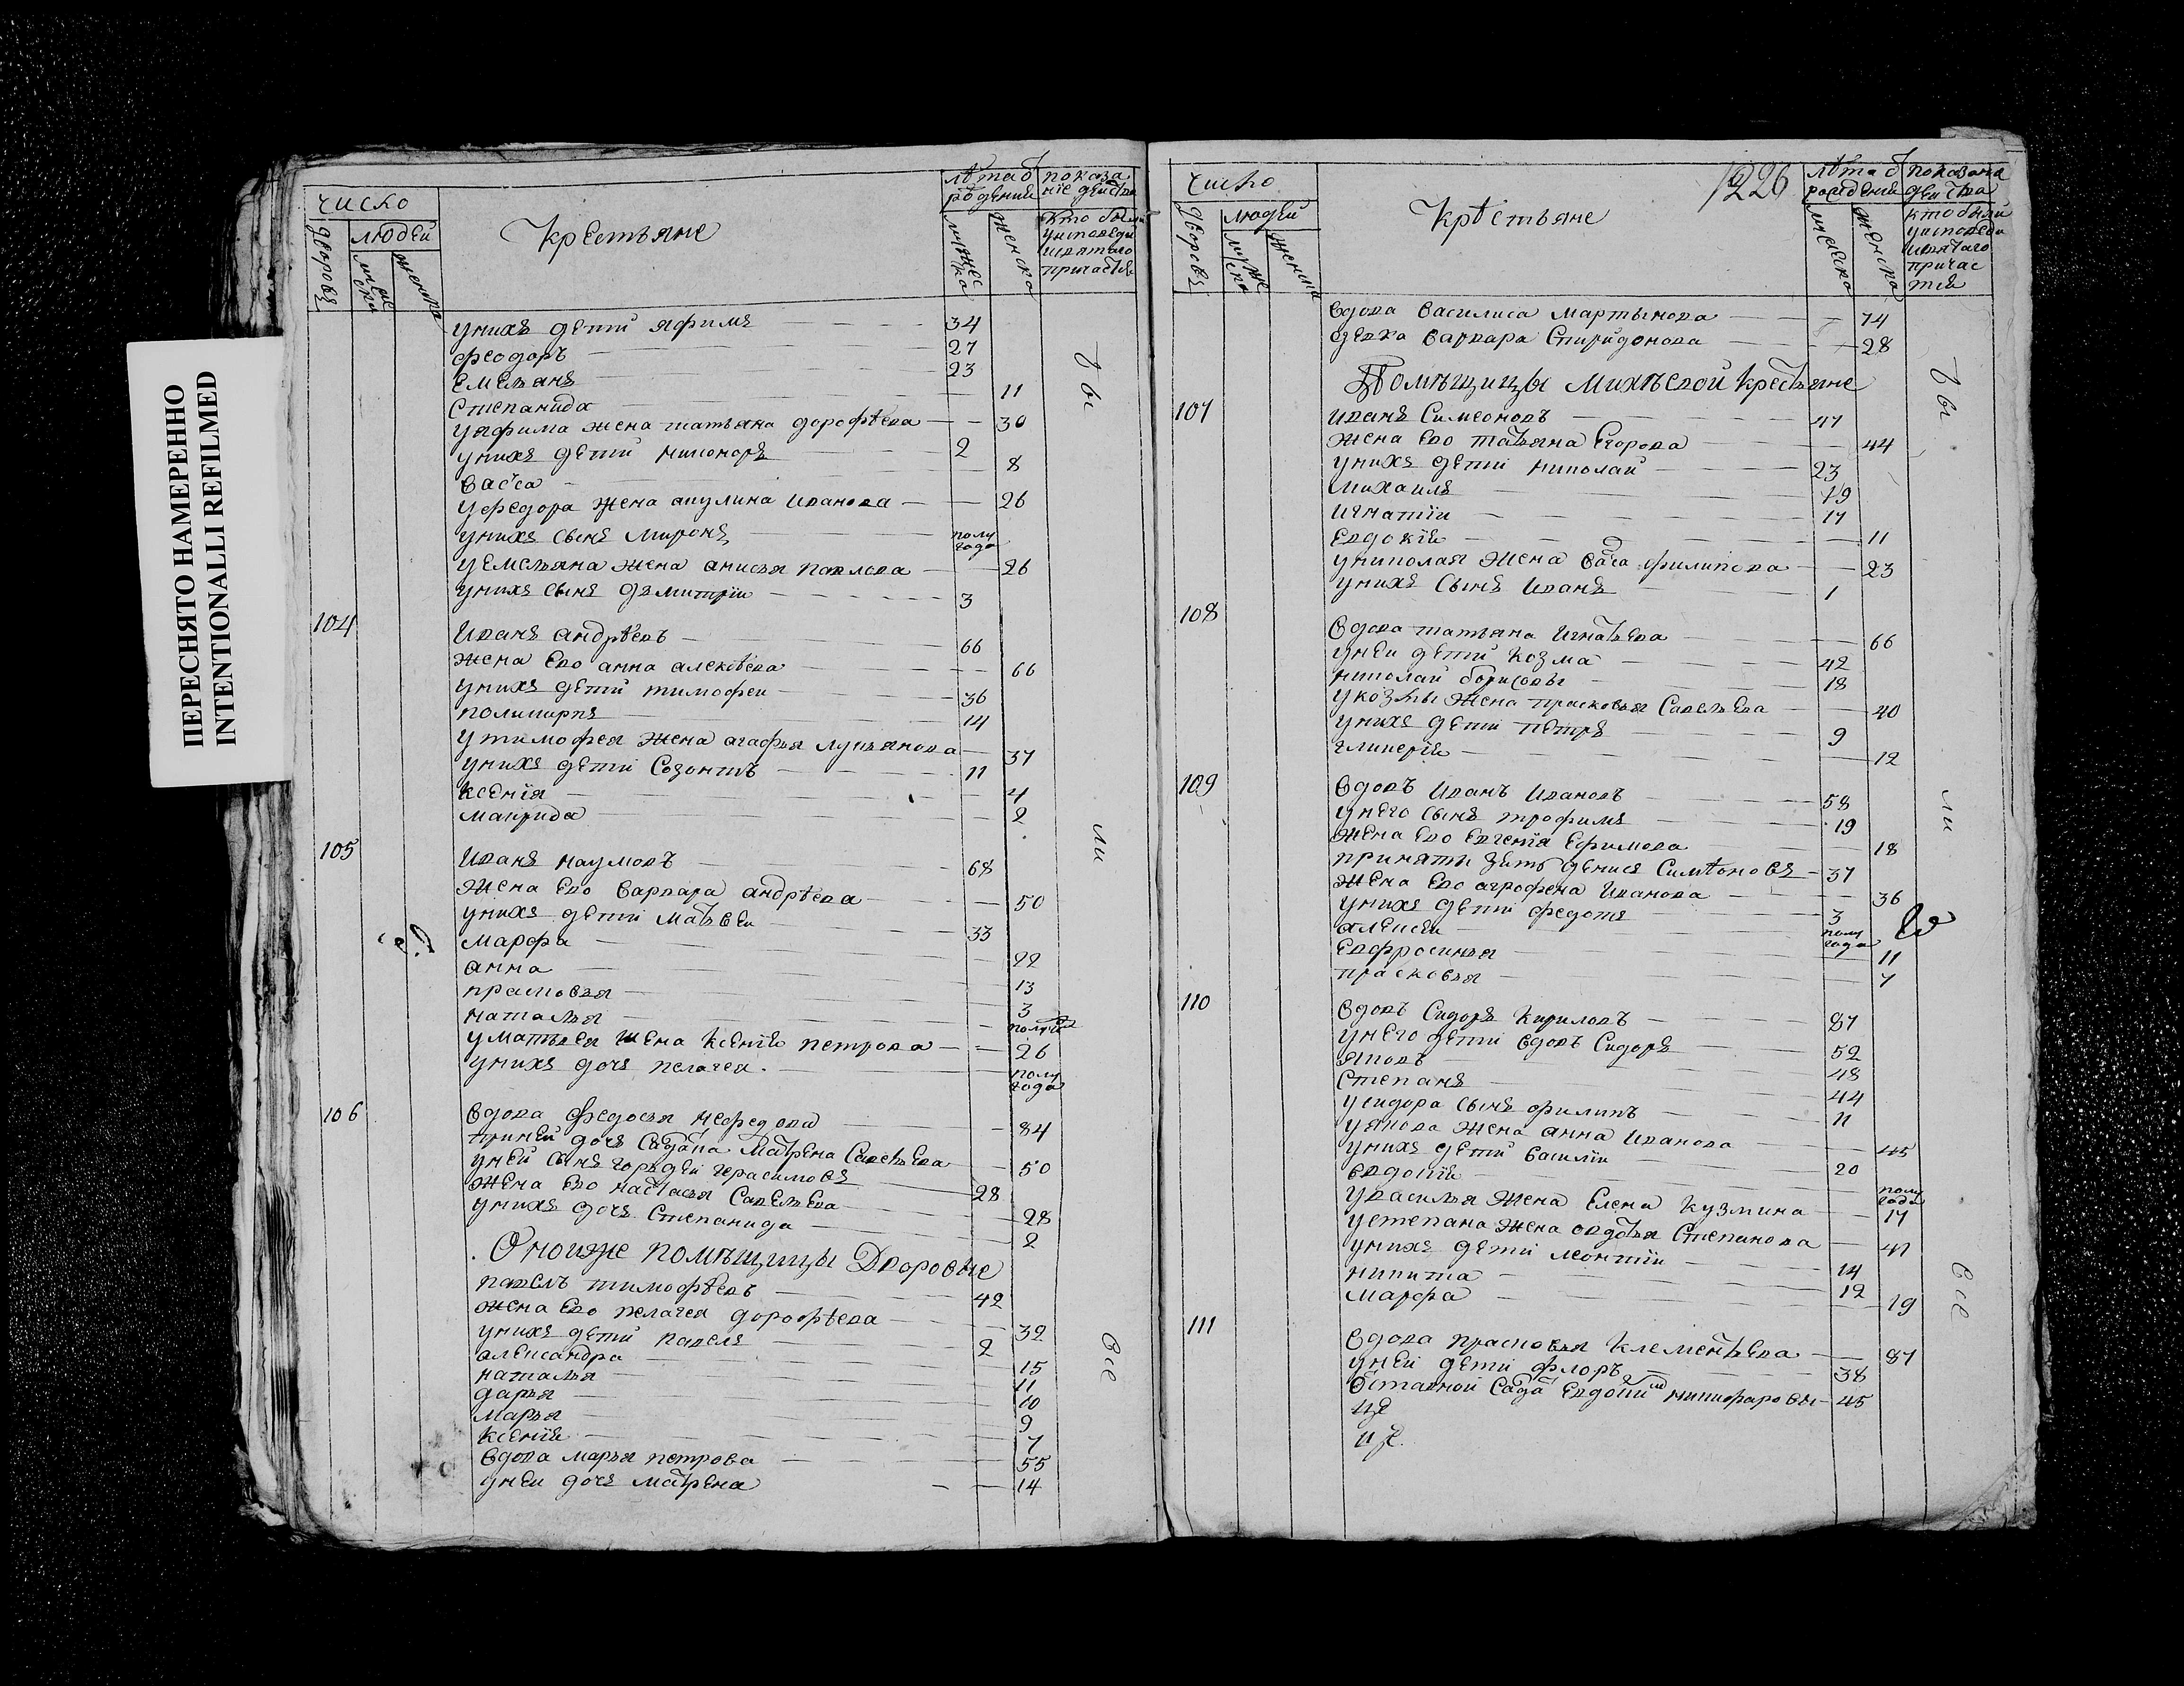 ПЕРЕСНЯТО НАМЕРЕННО
INTENTIONALLI REFILMED
число
людей
дворовъ
мужеска
женска
Крестьяне
лѣта от рождения
мужеска
женска
показание действа
кто был у исповеди и святаго причастия
унихъ дети яфимъ 34
феодоръ 27
Емельянъ 23
Степанида 11
уяфима жена татьяна дорофѣева 30
унихъ дети никоноръ 2
васса 8
уфедора жена акулина иванова 26
унихъ сынъ миронъ полугода
уемельяна жена анисья павлова 26
унихъ сынъ дмитрiи 3
104 иванъ андрѣевъ 66
жена ево анна алексѣева 66
унихъ дети тимофеи 36
поликарпъ 14
утимофея жена агафья лукьянова 37
унихъ дети Созонтъ 11
ксения 4
макрида 2
105 иванъ наумовъ 68
жена ево варвара андрѣева 50
унихъ дети матвеи 33
марфа 22
анна 13
прасковья 3
наталья полугода
уматвея жена ксениѣ петрова 26
унихъ дочь пелагея полугода
106 вдова федосья нефедова 84
приней дочь салдатка матрена савельева 50
уней сынъ гордеи герасимовъ 28
жена ево настасья савельева 28
унихъ дочь степанида 2
Оноиже помѣщицы Дворовые
павелъ тимофѣевъ 42
жена ево пелагея дорофѣева 32
унихъ дети павелъ 2
александра 15
наталья 11
дарья 10
марья 9
ксениѣ 7
вдова марья петрова 55
уней дочь матрена 14
бы
ли
все
число
людей
дворовъ
мужеска
женска
Крѣстьяне
1226
лѣта от рождения
мужеска
женска
показание действа
кто были у исповеди и святаго причастия
вдова василиса мартынова 74
девка варвара спиридонова 28
Помѣщицы михѣевой крестьяне
107 иванъ симеоновъ 47
жена ево татьяна егорова 44
унихъ дети николаи 23
михаилъ 19
игнатiи 17
евдокiѣ 11
униколая жена васа филипова 23
унихъ сынъ иванъ 1
108 вдова татьяна игнатьева 66
уней дети козма 42
николаи борисовы 18
укозмы жена прасковья савельева 40
унихъ дети петръ 9
гликериѣ 12
109 вдовъ иванъ ивановъ 58
унего сынъ трофимъ 19
жена ево евгения ефимова 18
приняты зять денисъ симѣоновъ 37
жена ево агрофена иванова 36
унихъ дети федотъ 3
алексеи полугода
евфросинья 11
прасковья 7
110 вдовъ сидоръ кириловъ 87
унего дети вдовъ сидоръ 52
яковъ 48
степанъ 44
усидора сынъ филипъ 11
уякова жена анна иванова 45
унихъ дети василiи 20
евдокиѣ полугода
увасилья жена елена кузмина 17
устепана жена авдотья степанова 41
унихъ дети леонтiи 14
никита 12
марфа 19
111 вдова прасковья клементьева 87
уней дети флоръ 38
отставной салдатъ евдокимъ никифоровы 45
бы
ли
все